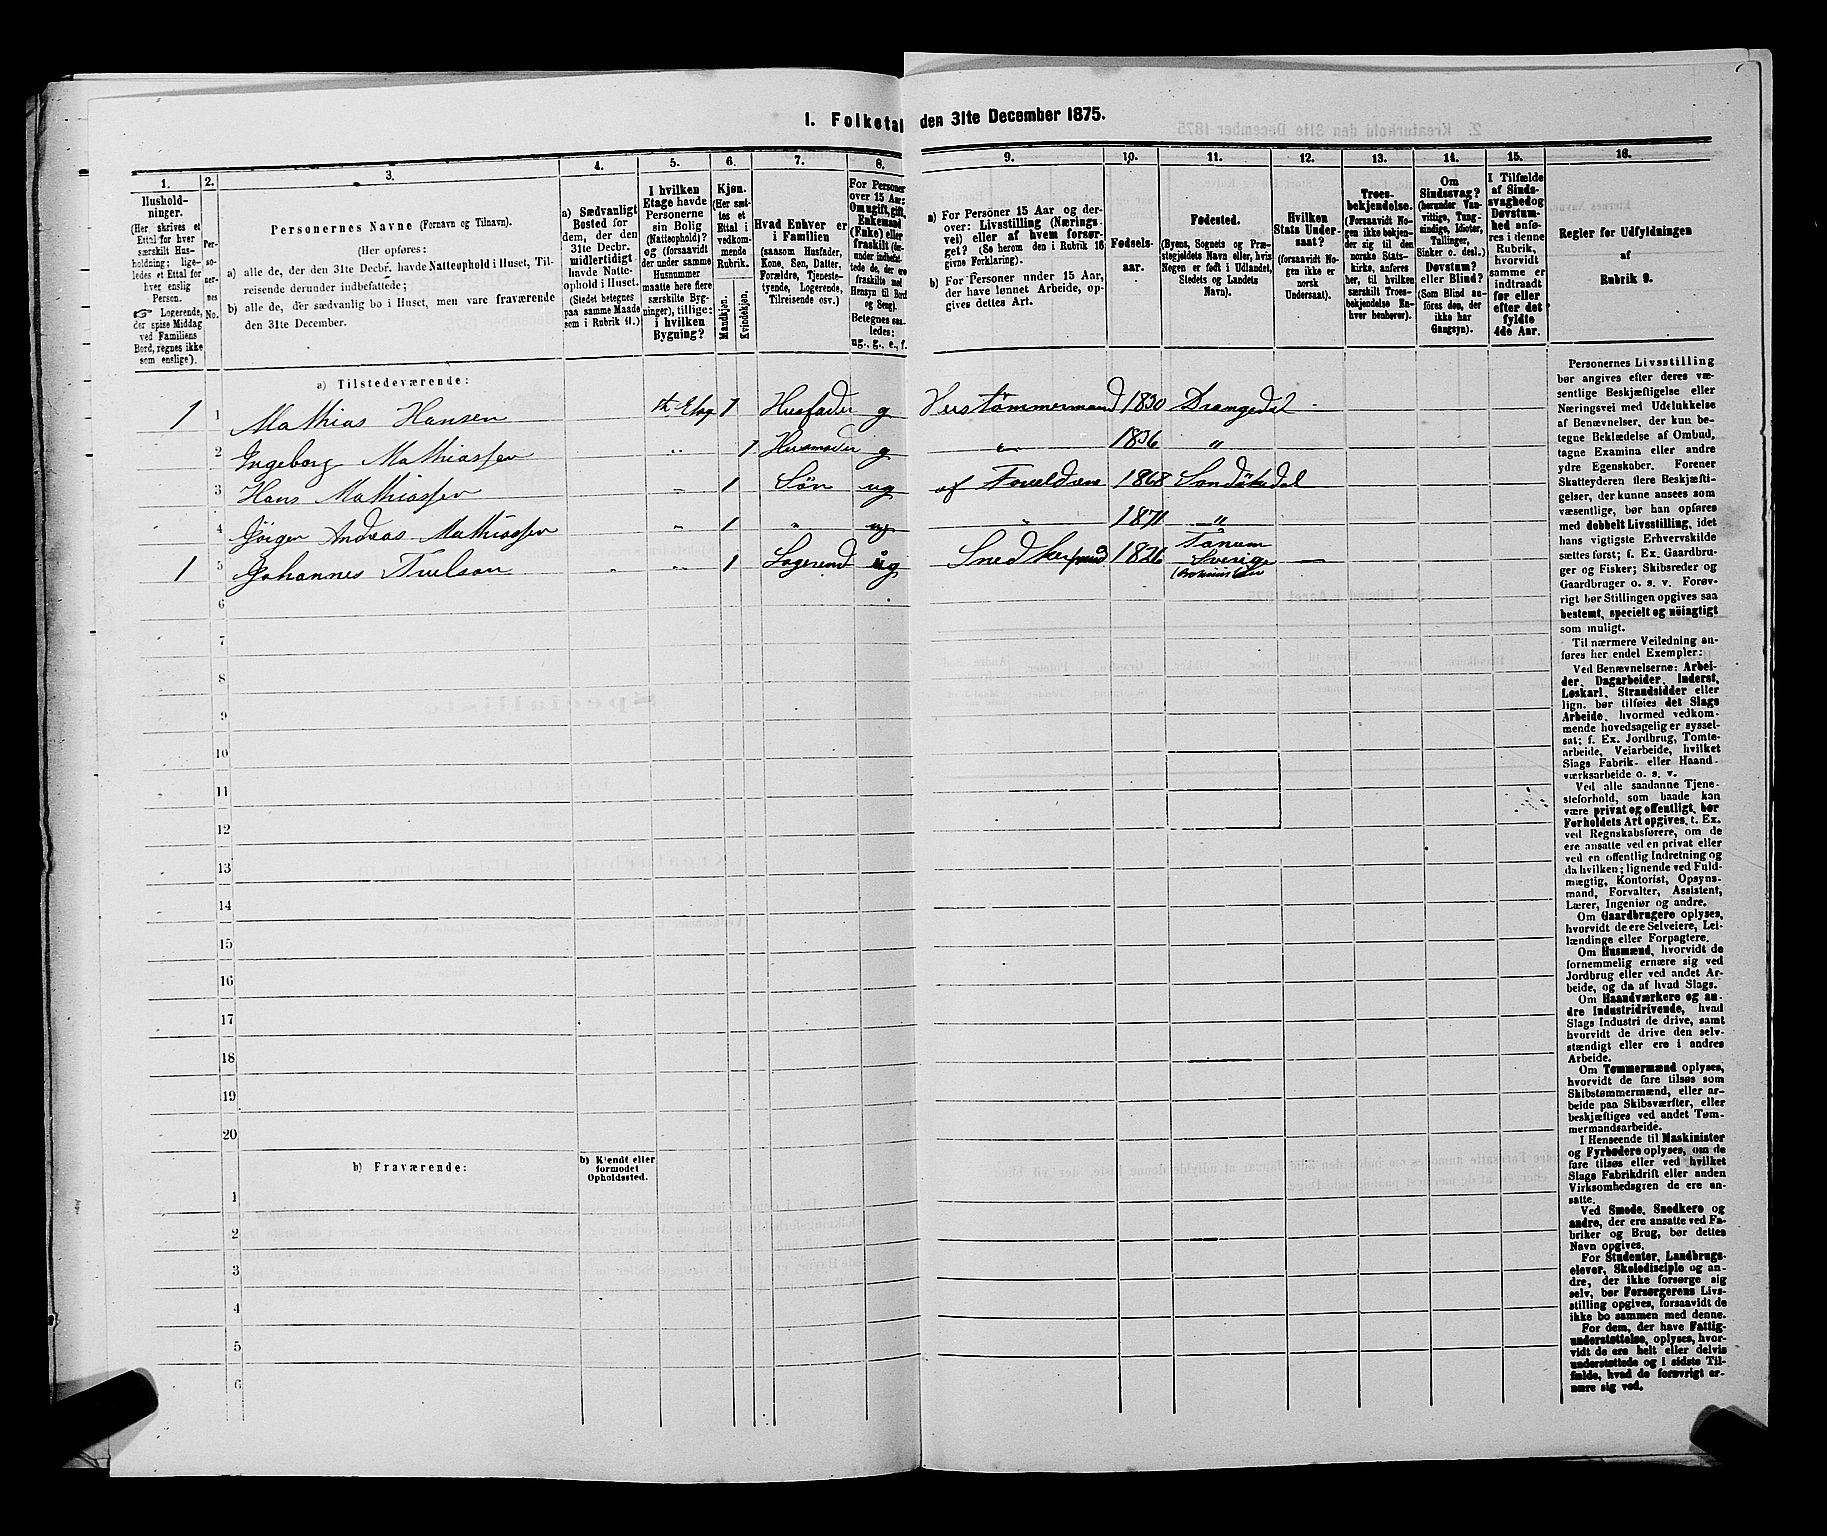 1. Folketal den 31te December 1875.
1. 2. 3. 4. 5. 6. 7. 8. 9. 10. 11. 12. 13. 14. 15. 16.
Hushold-
ninger.
(Her skrives et
Ettal for hver
særskilt Hus-
holdning; lige-
ledes et Ettal for
hver enslig
Person.
☞ Logerende,
der spise Middag
ved Familiens
Bord, regnes ikke
som enslige).
Per-
so-
ner-
nes
No.
Personernes Navne (Fornavn og Tilnavn).
(Her opføres:
a) alle de, der den 31te Decbr. havde Natteophold i Huset, Til-
reisende derunder indbefattede;
b) alle de, der sædvanlig bo i Huset, men vare fraværende
den 31te December.
a) Sædvanligt
Bosted for
dem, der den
31te Decbr.
midlertidigt
havde Natte-
ophold i Huset.
(Stedet betegnes
paa samme Maade
som i Rubrik 11.)
I hvilken
Etage havde
Personerne
sin Bolig
(Natteophold)?
og (forsaavidt
der under samme
Husnummer
maatte høre flere
særskilte Byg-
ninger), tillige:
i hvilken
Bygning?
Kjøn.
(Her sæt-
tes et
Ettal i
vedkom-
mende
Rubrik.
Mandkjøn.
Kvindekjøn.
Hvad Enhver er
i Familien
(saasom Husfader,
Kone, Søn, Datter,
Forældre, Tjeneste-
tyende, Logerende,
Tilreisende osv.)
For Personer
over 15 Aar:
Omugift, gift,
Enkemand
(Enke) eller
fraskilt (der-
under indbefat-
tede de, der ere
fraskilte med
Hensyn til Bord
og Seng).
Betegnes saa-
ledes:
ug., g., e., f.
a) For Personer 15 Aar og der-
over: Livsstilling (Nærings-
vei) eller af hvem forsør-
get? (Se herom den i Rubrik 16
givne Forklaring).
b) For Personer under 15 Aar,
der have lønnet Arbeide, op-
gives dettes Art.
Fødsels-
aar.
Fødested.
(Byens, Sognets og Præ-
stegjeldets Navn eller, hvis
Nogen er født i Udlandet,
Stedets og Landets
Navn).
Hvilken
Stats Under-
saat?
(forsaavidt No-
gen ikke er
norsk
Undersaat).
Troes-
bekjendelse.
(Forsaavidt No-
gen ikke bekjen-
der sig til den
norske Stats-
kirke, anføres
her, til hvilken
særskilt Troes-
bekjendelse En-
hver henhører).
Om
Sindssvag?
(herunder Van-
vittige, Tung-
sindige, Idioter,
Tullinger,
Sinker o. desl.)
Døvstum?
eller Blind?
(Som Blind an-
føres den, der
ikke har
Gangsyn).
I Tilfælde
af Sinds-
svaghed og
Døvstum-
hed anfø-
res i denne
Rubrik,
hvorvidt
samme er
indtraadt
før eller
efter det
fyldte
4de Aar.
Regler for Udfyldningen
af
Rubrik 9.
a) Tilstedeværende:
1 1 Mathias Hansen 1 Husfader g tømmermand 1830 Drangedal -
2 Ingeborg Mathiassen " 1 Husmoder g " 1836 "
3 Hans Mathiassen " 1 Søn ug af Forældrene 1868
4 Jörgen Andreas Mathiassen " 1 " ug " 1871 "
1 5 Johannes " " 1 Logerend ug 1826 Tanum
Sverige -
6
7
8
9
10
11
12
13
14
15
16
17
18
19
20
b) Fraværende:
b) Kjendt eller
formodet
Opholdssted.
1
2
3
4
5
6
Personernes Livsstilling
bør angives efter deres væ-
sentlige Beskjæftigelse eller
Næringsvei med Udelukkelse
af Benævnelser, der kun be-
tegne Beklædelse af Ombud,
tagne Examina eller andre
ydre Egenskaber. Forener
Skatteyderen flere Beskjæfti-
gelser, der kunne ansees som
væsentlige, bør han opføres
med dobbelt Livsstilling, idet
hans vigtigste Erhvervskilde
sættes først; f. Ex. Gaardbru-
ger og Fisker; Skibsreder og
Gaardbruger o. s. v. Forøv-
rigt bør Stillingen opgives saa
bestemt, specielt og nöiagtigt
som muligt.
Til nærmere Veiledning an-
føres her endel Exempler:
Ved Benævnelserne: Arbei-
der, Dagarbeider, Inderst,
Løskarl, Strandsidder eller
lign. bør tilføies det Slags
Arbeide, hvormed vedkom-
mende hovedsagelig er syssel-
sat; f. Ex. Jordbrug, Tomte-
arbeide, Veiarbeide, hvilket
Slags Fabrik- eller Haand-
værksarbeide o. s. v.
Ved alle saadanne Tjene-
steforhold, som baade kan
være privat og offentligt, bør
Forholdets Art opgives, t. Ex.
ved Regnskabsførere, om de
ere ansatte ved en privat eller
ved en offentlig Indretning og
da hvilken; lignende ved Fuld-
mægtig, Kontorist, Opsyns-
mand, Forvalter, Assistent,
Lærer, Ingeniør og andre.
Om Gaardbrugere oplyses,
hvorvidt de ere Selveiere, Lei-
lændinge eller Forpagtere.
Om Husmænd, hvorvidt de
fornemmelig ernære sig ved
Jordbrug eller ved andet Ar-
beide, og da af hvad Slags.
Om Haandværkere og an-
dre Industridrivende, hvad
Slags Industri de drive, samt
hvorvidt de drive den selv-
stændigt eller ere i andres
Arbeide.
Om Tømmermænd oplyses,
hvorvidt de fare tilsøs som
Skibstømmermænd, eller ar-
beide paa Skibsværfter, eller
beskjæftiges ved andet Tøm-
mermandsarbeide.
I Henseende til Maskinister
og Fyrbødere oplyses, om de
fare tilsøs eller ved hvilket
Slags Fabrikdrift eller anden
Virksomhedsgren de ere an-
satte.
Ved Smede, Snedkere og
andre, der ere ansatte ved Fa-
briker og Brug, bør dettes
Navn opgives.
For Studenter, Landbrugs-
elever, Skoledisciple og an-
dre, der ikke forsørge sig
selv, bør Forsørgerens Livs-
stilling opgives, forsaavidt de
ikke bo sammen med denne.
For dem, der have Fattig-
understøttelse, oplyses, hvor-
vidt de ere helt eller delvis
understøttede og i sidste Til-
fælde, hvad de forøvrigt er-
nære sig ved.